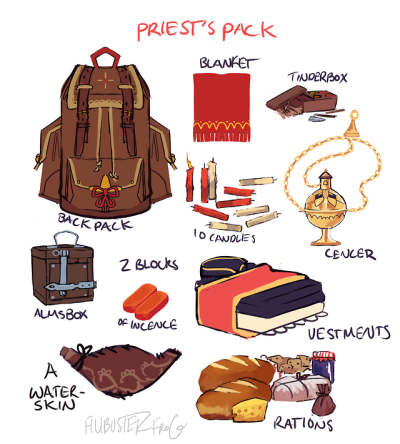 PRIEST'S PACK
BLANKET
TINDERBOX
BACKPACK
10 CANDLES
CENCER
ALMSBOX
2 BLOCKS
OF INCENCE
VESTMENTS
A
WATER-
SKIN
RATIONS